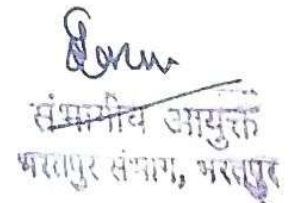 संभागीय आयुक्त
भरतपुर संभाग, भरतपुर